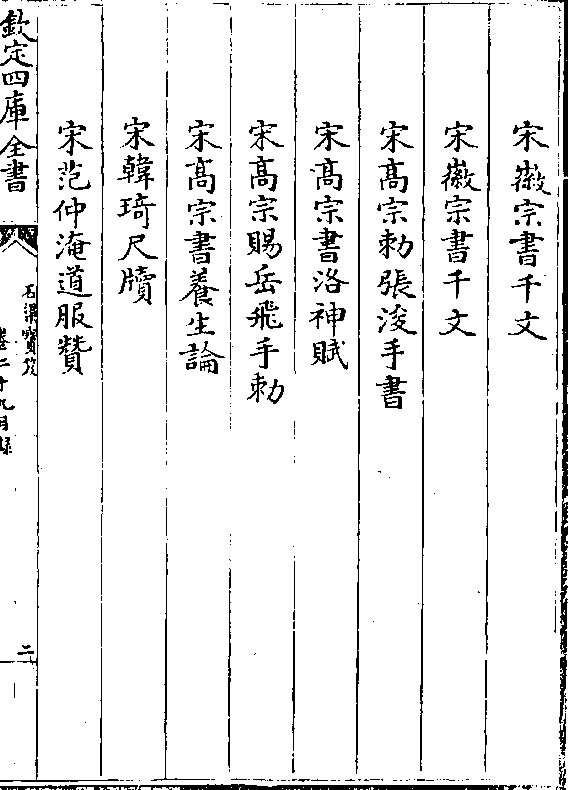 宋徽宗書千文
宋徽宗書千文
宋髙宗勅張浚手書
宋髙宗書洛神賦
宋髙宗賜岳飛手勅
宋髙宗書養生論
宋韓琦尺牘
宋范仲淹道服贊
欽定四庫全書
石渠寶笈
卷二十九目錄
二